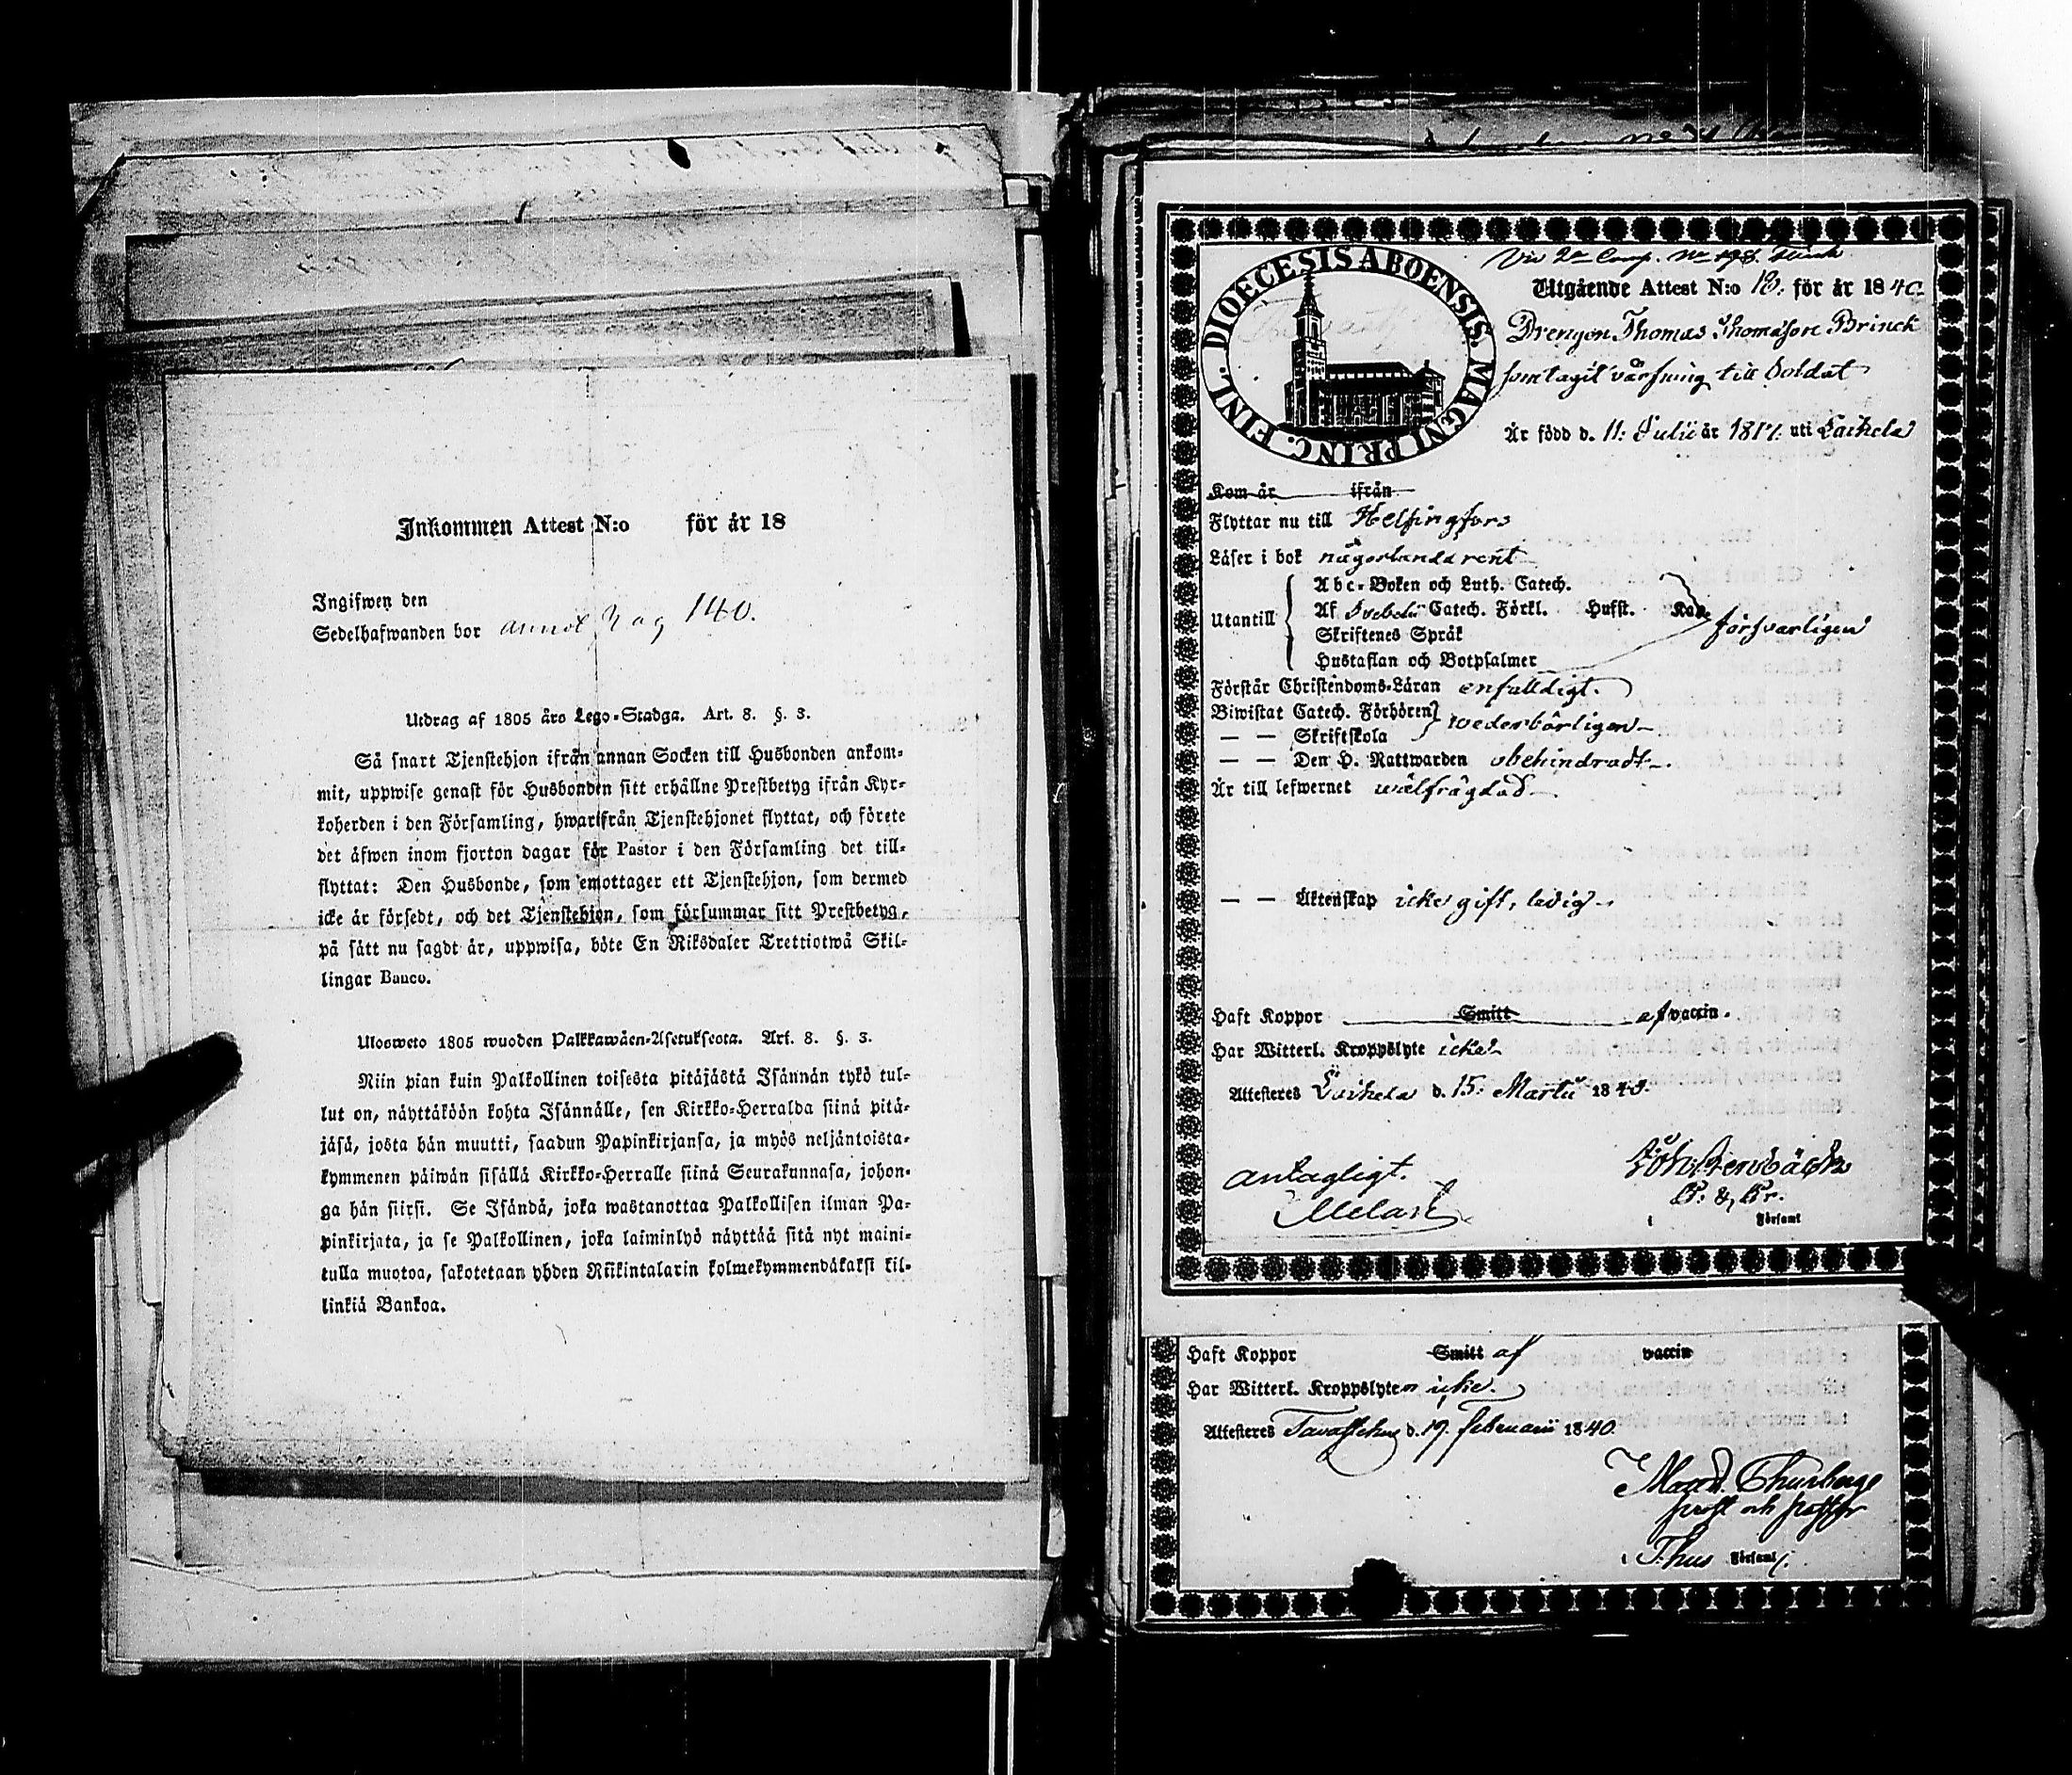 Inkommen Attest N:o för år 18
Ingifwen den
Sedelhafwanden bor annot. pag 140.
Utdrag af 1805 års Lego-Stadga. Art. 8. §. 3.
Så snart Tjenstehjon ifrån annan Socken till Husbonden ankom-
mit, uppwise genast för Husbonden sitt erhållne Prestbetyg ifrån Kyr-
koherden i den Församling, hwarifrån Tjenstehjonet flyttat, och förete
det äfwen inom fjorton dagar för Pastor i den Församling det till-
flyttat: Den Husbonde, som emottager ett Tjenstehjon, som dermed
icke är försedt, och det Tjenstehjon, som försummar sitt Prestbetyg,
på sätt nu sagdt är, uppwisa, böte En Riksdaler Trettiotwå Skil-
lingar Banco.
Ulosweto 1805 wuoden Palkkawäen-Asetuksesta. Art. 8. §. 3.
Niin pian kuin Palkollinen toisesta pitäjästä Isännän tykö tul-
lut on, näyttäköön kohta Isännälle, sen Kirkko-Herralda siinä pitä-
jäsä, josta hän muutti, saadun Papinkirjansa, ja myös neljäntoista-
kymmenen päiwän sisällä Kirkko-Herralle siinä Seurakunnasa, johon-
ga hän siirsi. Se Isändä, joka wastanottaa Palkollisen ilman Pa-
pinkirjata, ja se Palkollinen, joka laiminlyö näyttää sitä nyt maini-
tulla muotoa, sakotetaan yhden Riikintalarin kolmekymmendäkaksi kil-
linkiä Bankoa.
DIOECESIS ABOENSIS. MAGNI PRINC. FINL.
Vid 2a Comp. No 198.
Utgående Attest N:o 18. för år 1840.
Drengen Thomas Thomasson Brinck
som tagit värfning till Soldat
Är född d. 11: Julii år 1817. uti Laihela
Kom år ifrån
Flyttar nu till Helsingfors
Läser i bok någorlunda rent
Utantill
Abc-Boken och Luth. Catech.
Af Svebelii Catech. Förkl. Husst. Kan försvarligen
Skriftenes Språk
Hustaflan och Botpsalmer
Förstår Christendoms-Läran enfalldigt.
Biwistat Catech. Förhören wederbörligen
— — Skriftskola
— — Den H. Nattwarden obehindradt.
Är till lefwernet wälfrägdad
— — Äktenskap icke gift, ledig.
Haft Koppor Smitt af vaccin.
Har Witterl. Kroppslyte icke
Attesteres Laihela d. 15. Martii 1840.
antagligt.
Melart
P. & Pr.
i Församl
Haft Koppor Smitt af vaccin
Har Witterl. Kroppslyten icke.
Attesteres Tavastehus d. 19. februarii 1840.
Thunberg
prost och pastor
i T:hus Församl.